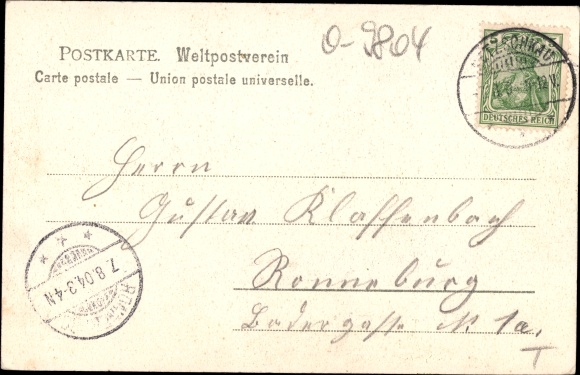 POSTKARTE. Weltpostverein
Carte postale — Union postale universelle.
0-9804
DEUTSCHES REICH
Herrn
Gustav Klaffenbach
Ronneburg
Badergasse N. 1a.
7.8.04.3-4N